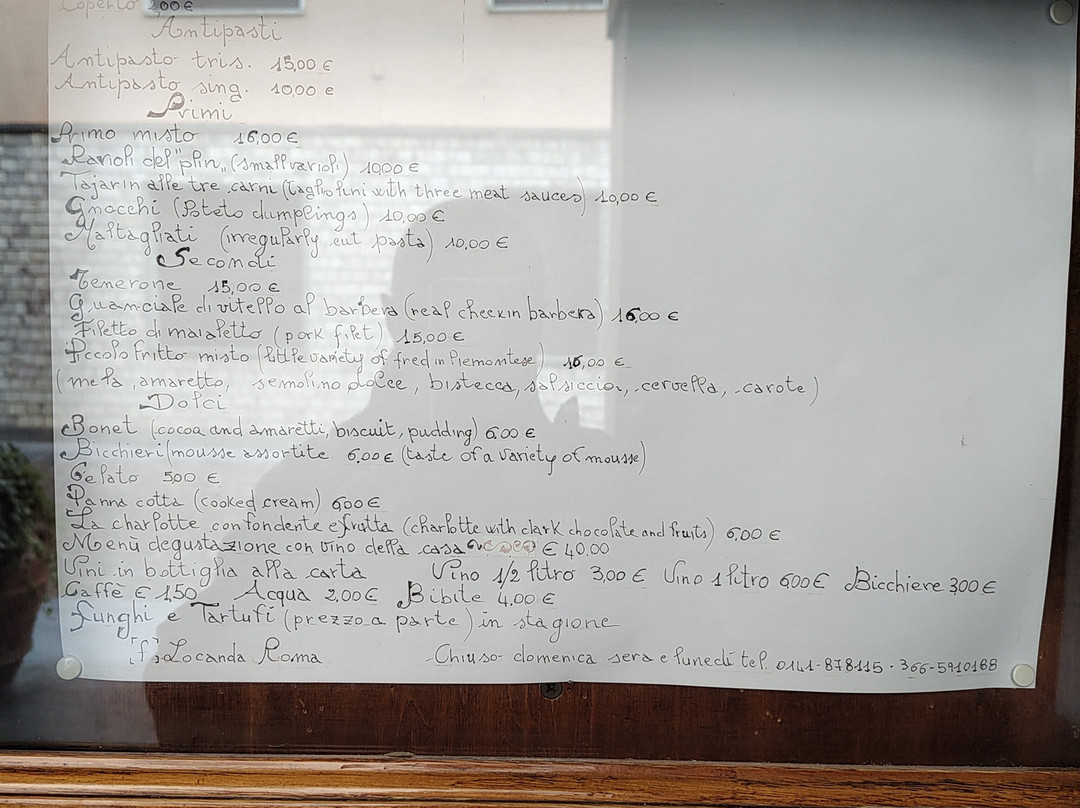 Coperto 2,00 €
Antipasti
Antipasto tris. 15,00 €
Antipasto sing. 10,00 e
Primi
Primo misto 16,00 €
Ravioli del "plin„ (small varioli) 10,00 €
Tajarin alle tre carni (Tagliolini with three meat sauces) 10,00 €
Gnocchi (Poteto dumpeings) 10,00 €
Maltagliati (irregularly cut pasta) 10,00 €
Secondi
Tenerone 15,00 €
Guanciale di vitello al barbera (real check in barbera) 16,00 €
Filetto di maialetto (pork filet) 15,00 €
Piccolo fritto misto (little variety of fred in Piemontese) 16,00 €
(mela, amaretto, semolino dolce, bistecca, salsiccia, cervella, carote)
Dolci
Bonet (cocoa and amaretti, biscuit, pudding) 6.00 €
Bicchieri (mousse assortite 6,00 € (taste of a variety of mousse)
Gelato 5,00 €
Panna cotta (cooked cream) 6,00 €
La charlotte confondente e frutta (charlotte with clark chocolate and fruits) 6.00 €
Menù degustazione con vino della casa € 40,00
Vini in bottiglia alla carta Vino 1/2 litro 3,00 € Vino 1 litro 6,00 € Bicchiere 3,00 €
Caffè € 1,50 Acqua 2,00 € Bibite 4,00 €
Funghi e Tartufi (prezzo a parte) in stagione
[f] Locanda Roma Chiuso domenica sera e lunedì tel. 0141-878115 - 366-5910188